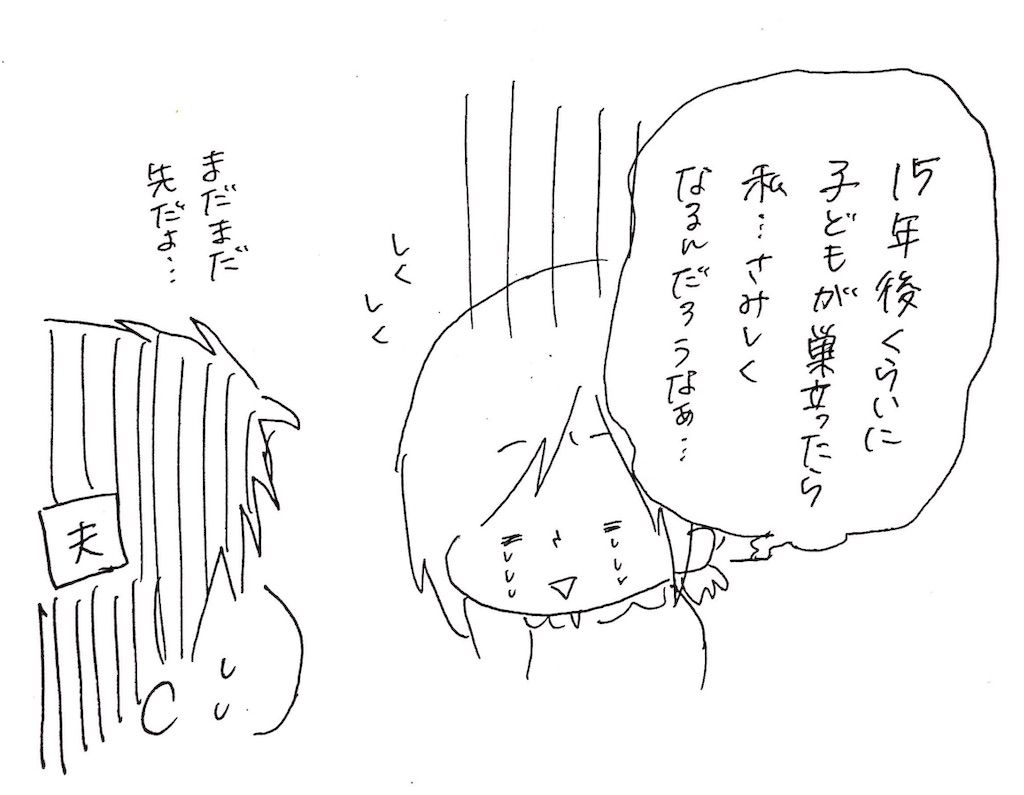 15年後くらいに
子どもが巣立ったら
私…さみしく
なるんだろうなぁ…
しく
しく
まだまだ
先だよ…
夫